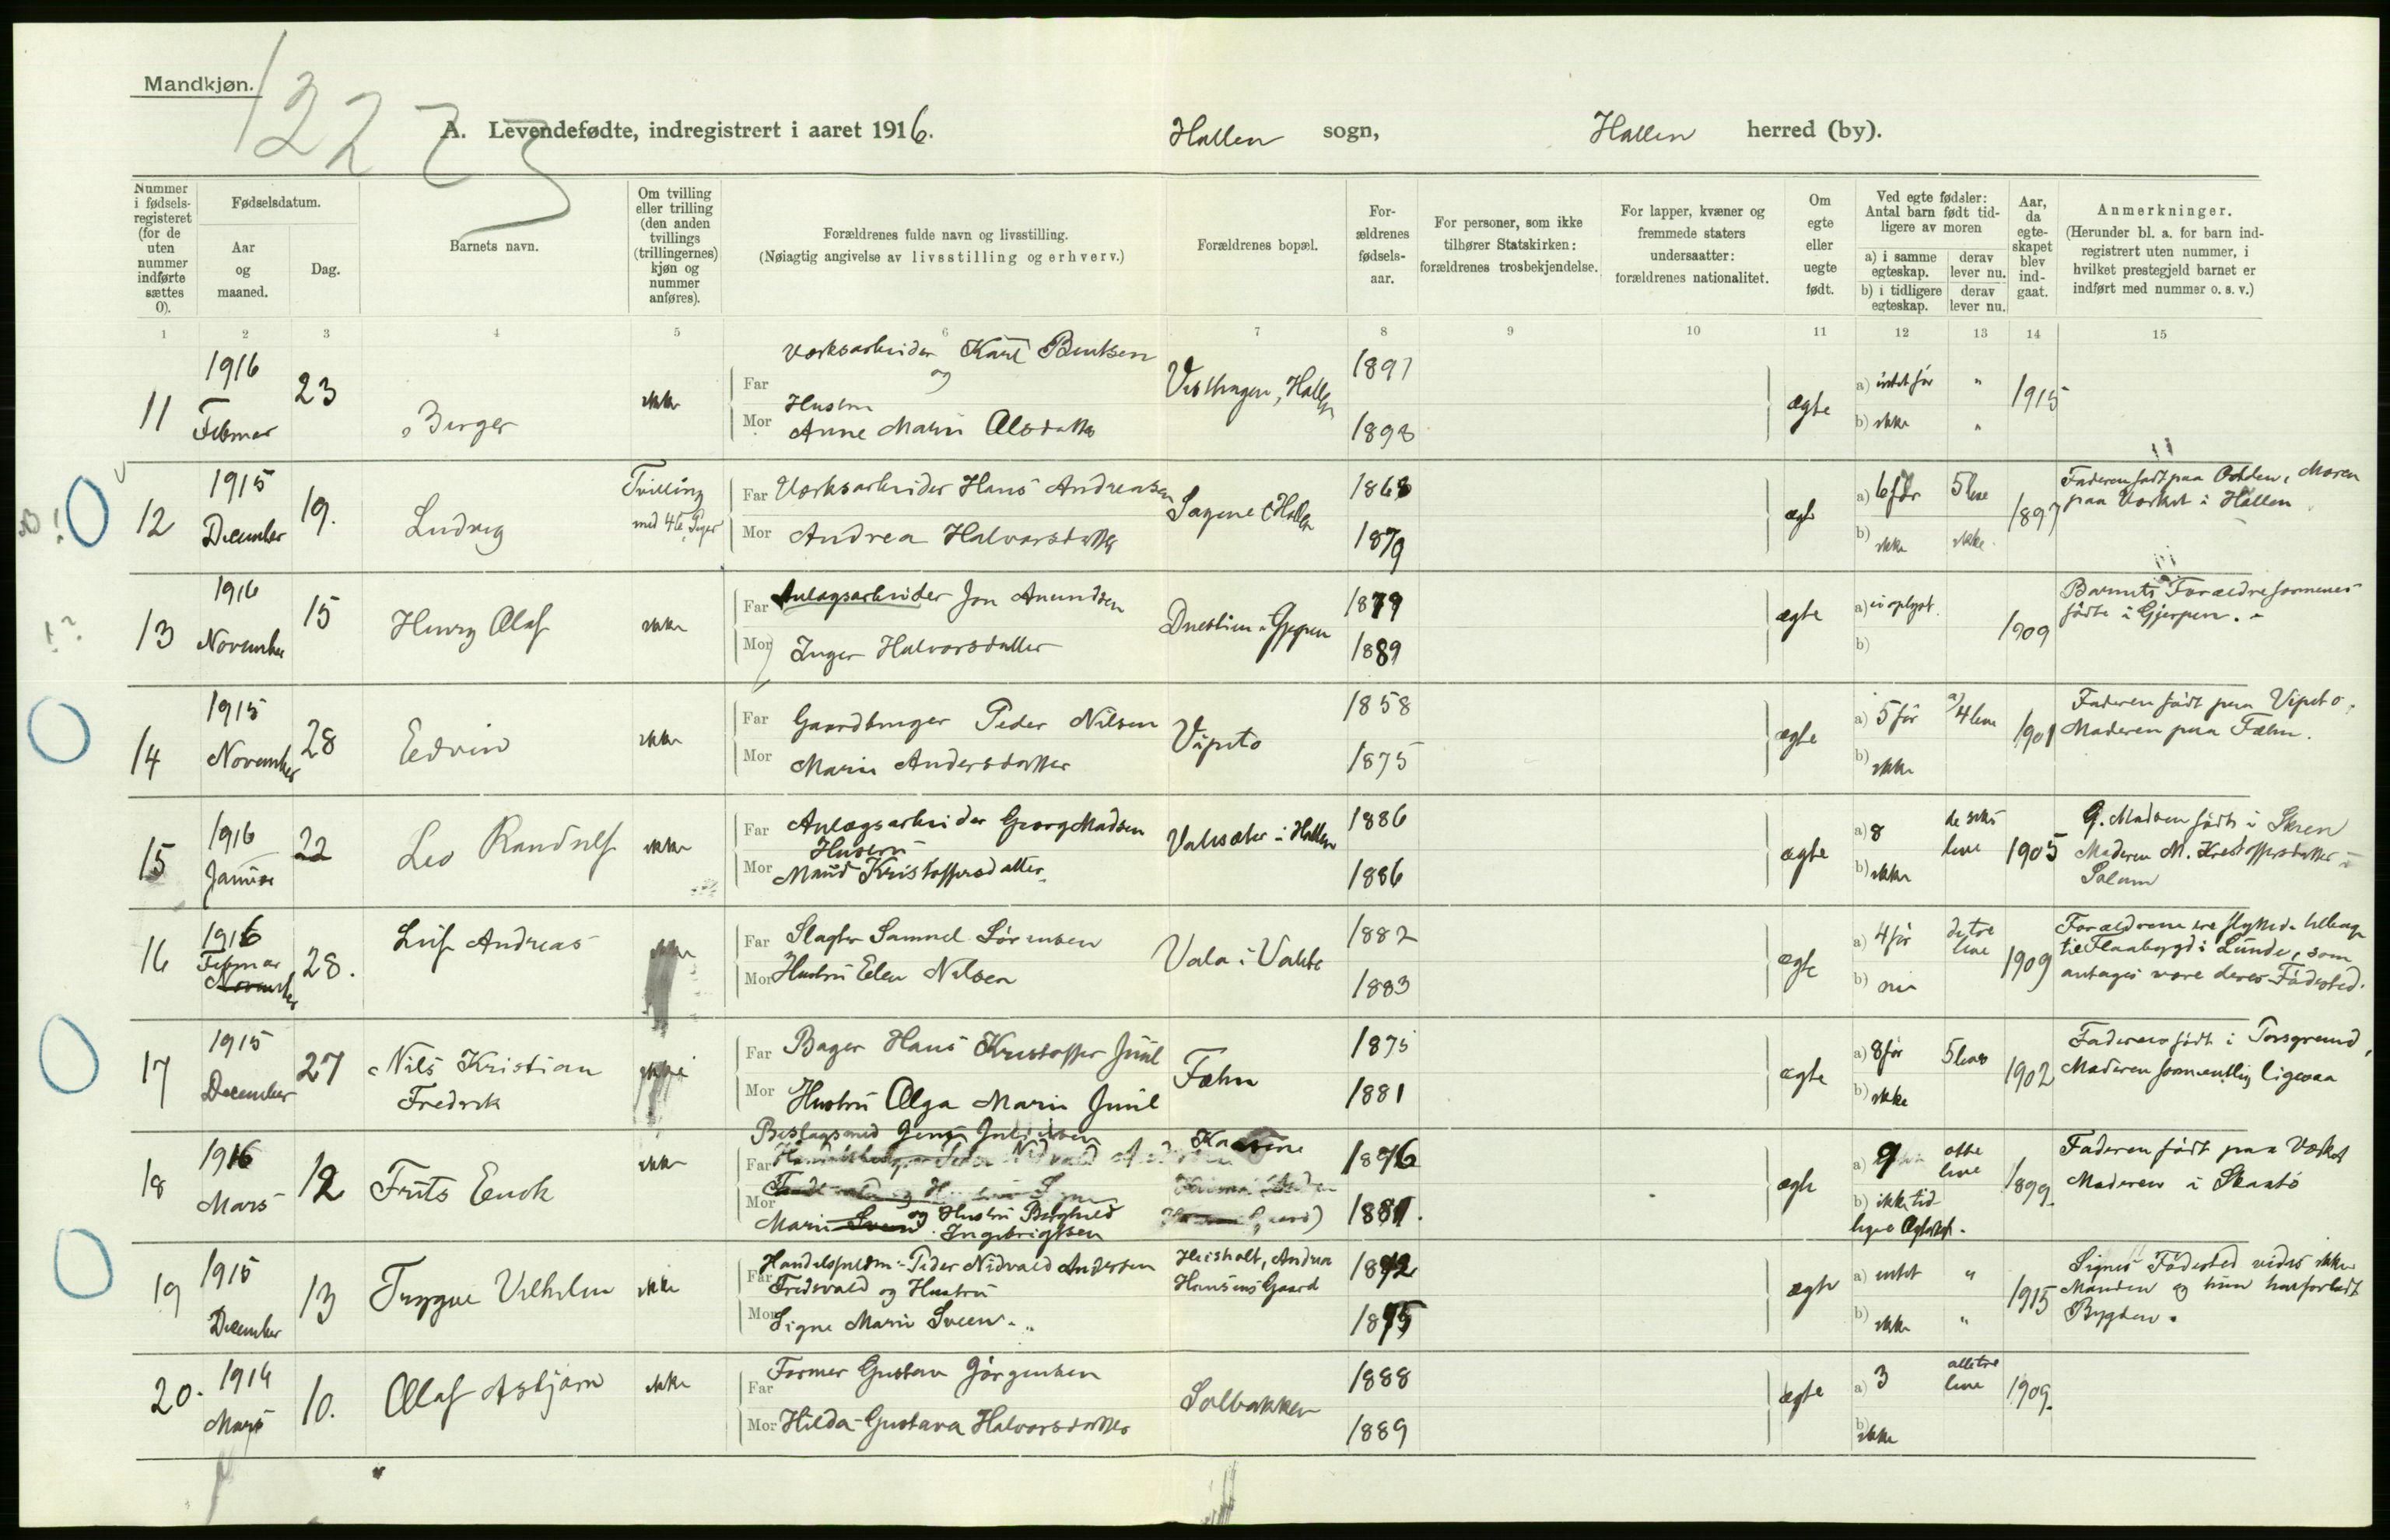 Mandkjøn.
A. Levendefødte, indregistrert i aaret 1916.
Hallen sogn,
Hallen herred (by).
Nummer i fødsels-registeret (for de uten nummer indførte sættes 0).
Fødselsdatum.
Aar og maaned.
Dag.
Barnets navn.
Om tvilling eller trilling (den anden tvillings (trillingernes) kjøn og nummer anføres).
Forældrenes fulde navn og livsstilling.
(Nøiagtig angivelse av livsstilling og erhverv.)
Forældrenes bopæl.
For-ældrenes fødsels-aar.
For personer, som ikke tilhører Statskirken: forældrenes trosbekjendelse.
For lapper, kvæner og fremmede staters undersaatter: forældrenes nationalitet.
Om egte eller uegte født.
Ved egte fødsler: Antal barn født tid-ligere av moren
a) i samme egteskap.
derav lever nu.
b) i tidligere egteskap.
derav lever nu.
Aar, da egte-skapet blev ind-gaat.
Anmerkninger.
(Herunder bl. a. for barn ind-registrert uten nummer, i hvilket prestegjeld barnet er indført med nummer o. s. v.)
1 2 3 4 5 6 7 8 9 10 11 12 13 14 15
11 1916 Februar 23 Birger ikke
Far Værksarbeider Karl Bentsen og
Mor Hustru Anne Marie Olsdatter
1891
1893
ægte a) intet før " b) ikke " 1915
12 1915 December 19. Ludvig Tvilling med 4 Piger
Far Værksarbeider Hans Andreasen
Mor Andrea Halvorsdatter
Sagene i Hallen
1868
1879
ægte a) 6 før 5 leve b) ikke ikke 1897
Faderen født paa Odden, Moren paa Værket i Hallen
13 1916 November 15 Henry Olaf ikke
Far Anlægsarbeider Jon Amundsen
Mor Inger Halvorsdatter
1879
1889
ægte a) ei oplyst b) 1909
Barnets Forældre formenes fødte i Gjerpen.
14 1915 November 28 Edvin ikke
Far Gaardbruger Peder Nilsen
Mor Marie Andersdatter
Vipeto
1858
1875
ægte a) 5 før a) 4 leve b) ikke 1901
Faderen født paa Vipeto, Moderen paa Fæhn.
15 1916 Januar 22 Leo Randulf ikke
Far Anlægsarbeider Georg Madsen
Mor Hustru Maud Kristoffersdatter
i Hallen
1886
1886
ægte a) 8 de seks leve b) ikke 1905
G. Madsen født i Skien
Moderen M. Kristoffersdatter i Solum
16 1916 Februar November 28. Leif Andreas
Far Slagter Samuel Sørensen
Mor Hustru Elen Nilsen
1882
1883
ægte a) 4 før de tre leve b) 1909
Forældrene ere flyttede tilbage til Flaabygd i Lunde, som antages være deres Fødested.
17 1915 December 27 Nils Kristian Fredrik
Far Bager Hans Kristoffer Juul
Mor Hustru Olga Marie Juul
Fæhn
1875
1881
ægte a) 8 før 5 leve b) ikke 1902
Faderen født i Porsgrund, Moderen formentlig ligesaa
18 1916 Mars 12 Frits Enok ikke
Far Beslagsmed
Mor og Hustru Borghild Marie Ingebrigtsen
1876
1881.
ægte a) 9 otte leve b) ikke tidligere Ægteskab. 1899.
Faderen født paa Værket Moderen i Skaatø
19 1915 December 13 Trygve Vilhelm ikke
Far Peder Nidvald Andersen Tredevald og Hustru
Mor Signe Marie Sveen
Heisholt, Andrea Hansens Gaard
1892
1895
ægte a) intet " b) ikke " 1915
Signes Fødested vides ikke Manden og hun har forladt Bygden.
20. 1916 Mars 10. Olaf Asbjørn ikke
Far Former Gustav Jørgensen
Mor Hilda Gustava Halvorsdatter
Solbakken
1888
1889
ægte a) 3 alle tre leve b) ikke 1909.